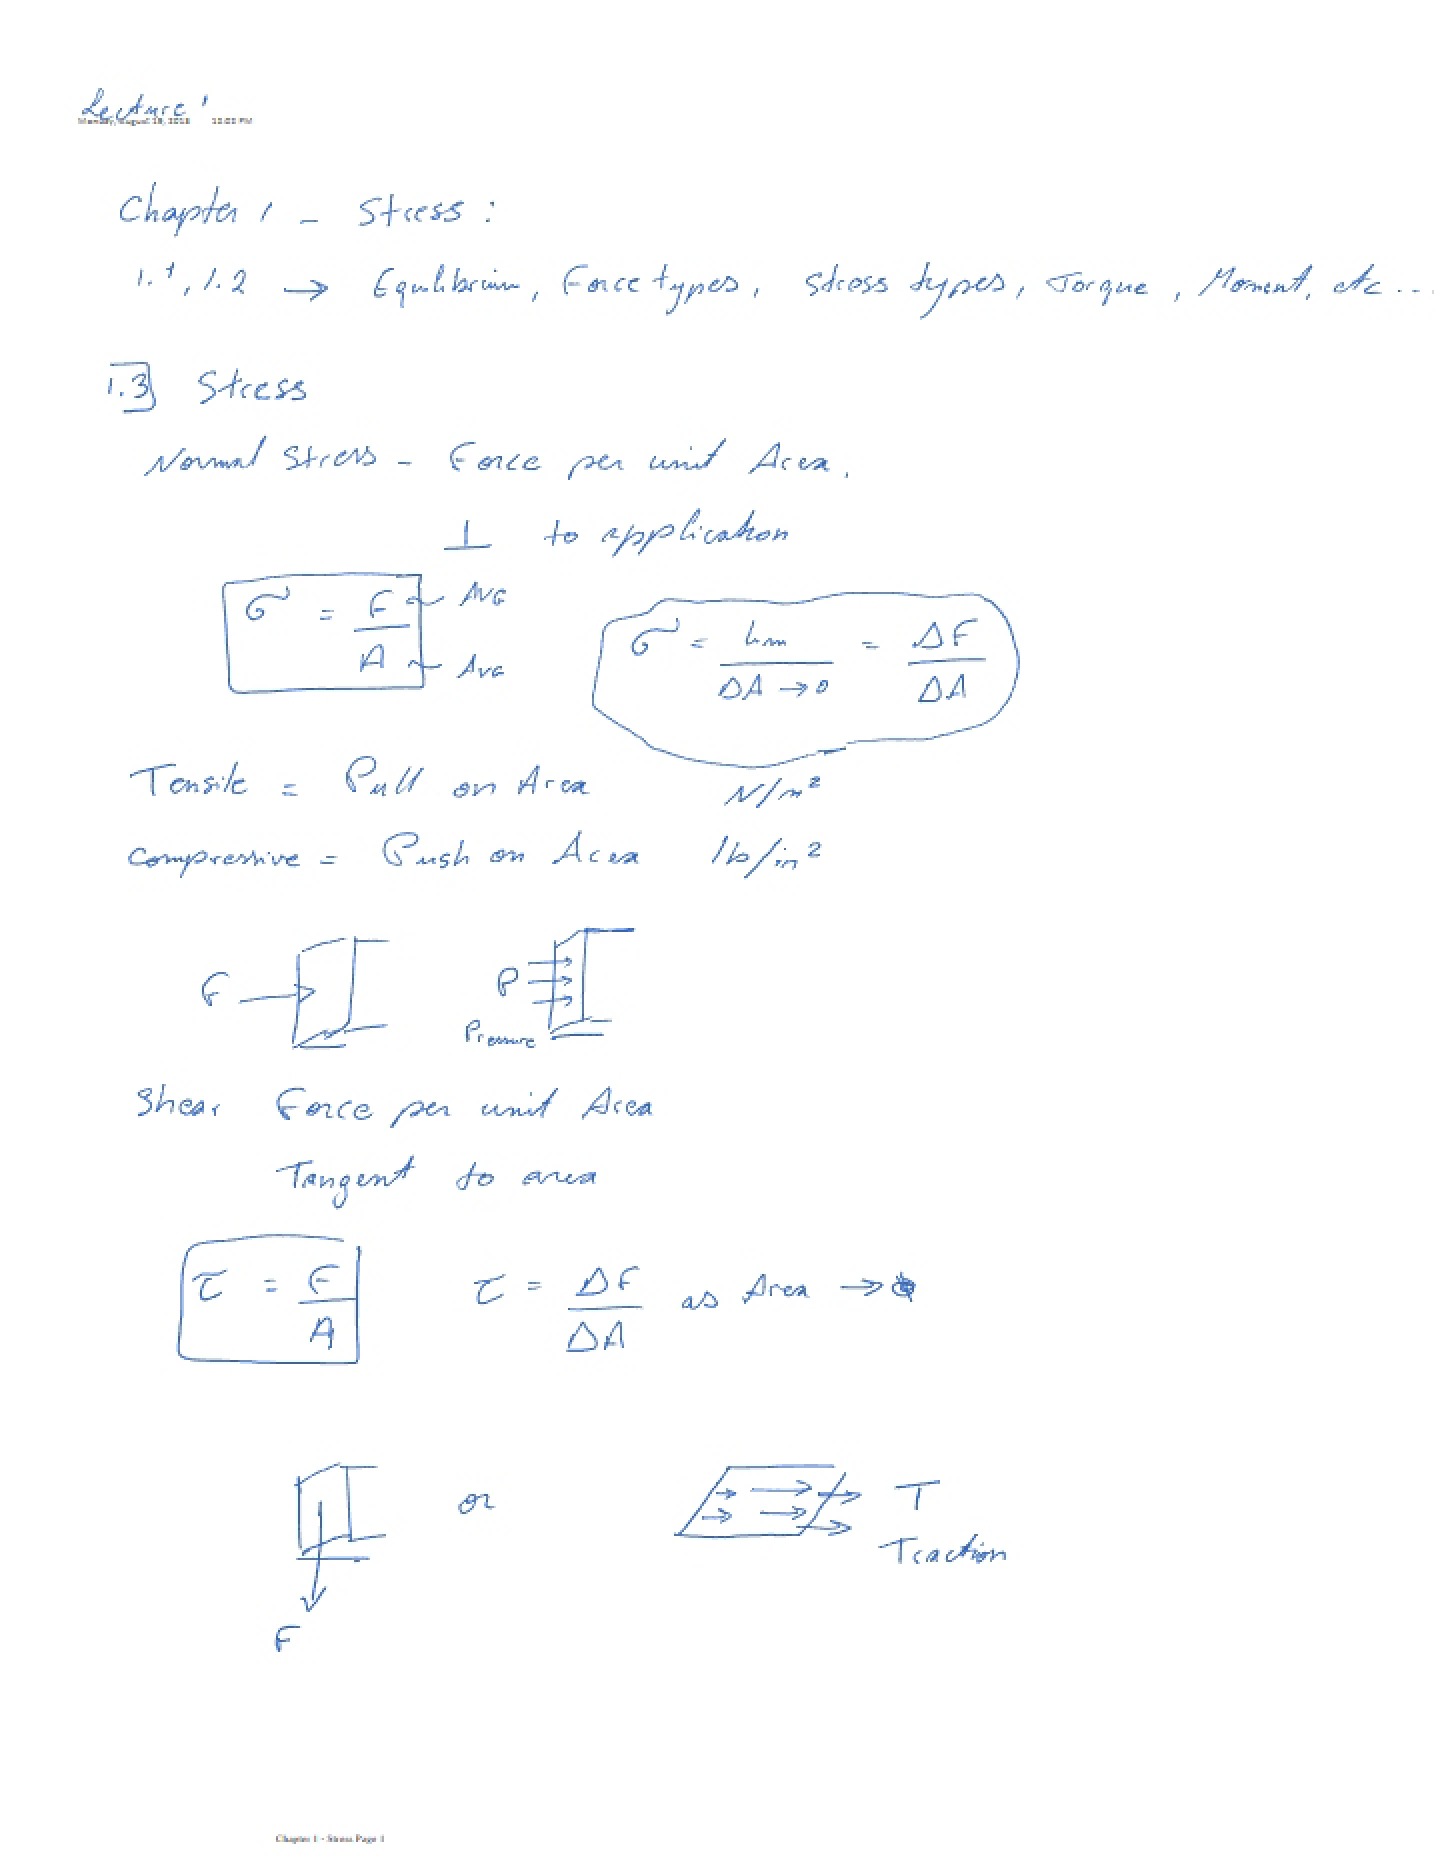 Lecture 1
Monday, August 2018 12:02 PM
Chapter 1 - Stress :
1.1, 1.2 → Equilibrium, Force types, Stress types, Torque, Moment, etc...
1.3 Stress
Normal Stress - Force per unit Area.
⊥ to application
σ = F/A
AVG
AVG
σ = lim/ΔA → 0 = ΔF/ΔA
Tensile = Pull on Area N/m²
Compressive = Push on Area lb/in²
F
P
Pressure
Shear Force per unit Area
Tangent to area
τ = F/A
τ = ΔF/ΔA as Area →
or
T
Traction
F
Chapter 1 - Stress Page 1